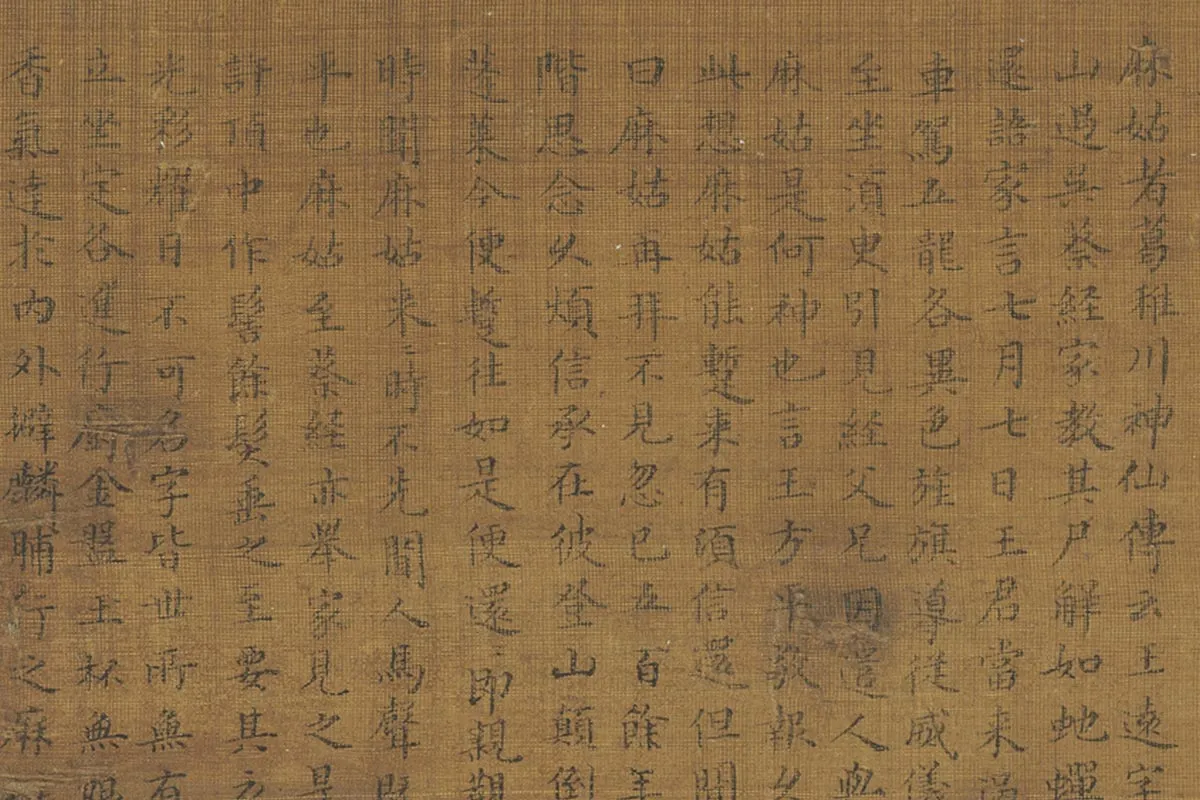 麻姑者葛稚川神仙傳云王遠字
山過吳蔡経家教其尸解如虵蟬
還語家言七月七日王君當来過
車駕五龍各異色旌旗導従威儀
至坐湏臾引見経父兄因遣人
麻姑是何神也言王方平敬報久
此想麻姑能蹔来有湏信還但聞
曰麻姑再拜不見忽已五百餘年
階思念久煩信承在彼登山顛倒
蓬莱今便蹔往如是便還即親覲
時聞麻姑来〻時不先聞人馬聲既
平也麻姑至蔡経亦舉家見之是
許頂中作髻餘髮垂之至要其衣
光彩耀日不可名字皆世所無有
立坐定各進行厨金盤玉杯無限
香氣達於內外擗麟脯行之麻